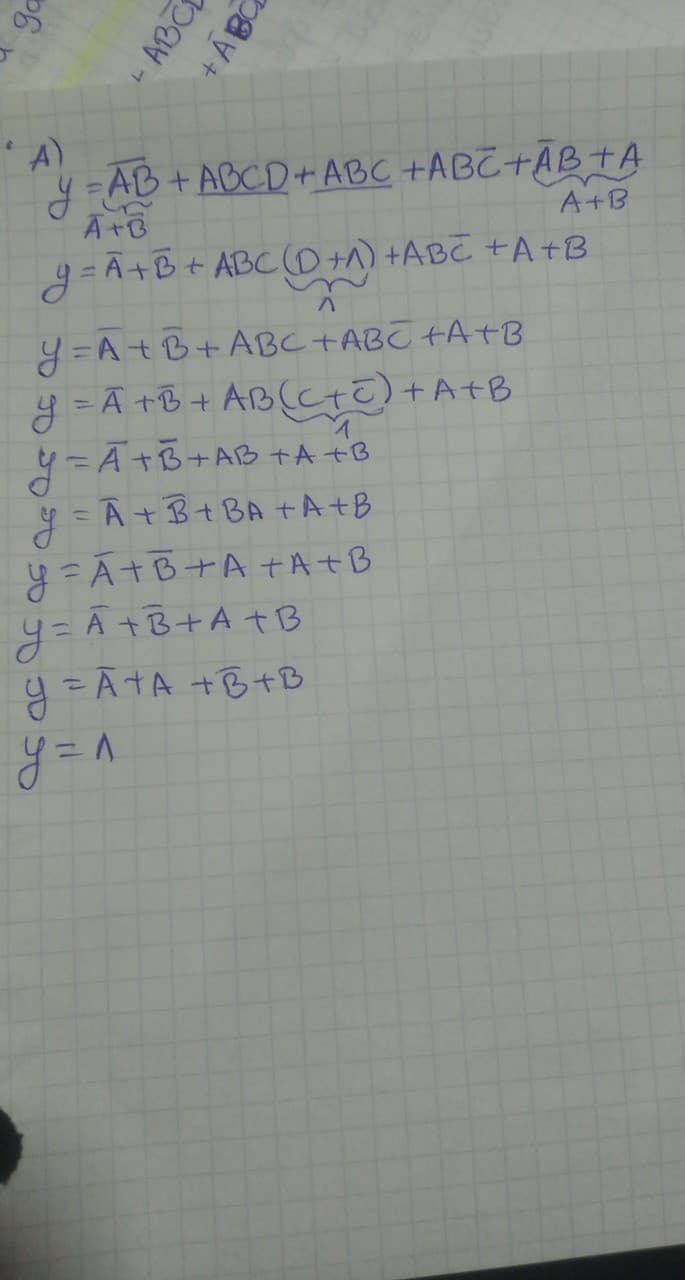 ABC̅
+ A̅BC
A)
y = A̅B̅ + ABCD + ABC + ABC̅ + A̅B + A
A̅ + B̅
A + B
y = A̅ + B̅ + ABC (D + 1) + ABC̅ + A + B
1
y = A̅ + B̅ + ABC + ABC̅ + A + B
y = A̅ + B̅ + AB (C + C̅) + A + B
1
y = A̅ + B̅ + AB + A + B
y = A̅ + B̅ + BA + A + B
y = A̅ + B̅ + A + A + B
y = A̅ + B̅ + A + B
y = A̅ + A + B̅ + B
y = 1